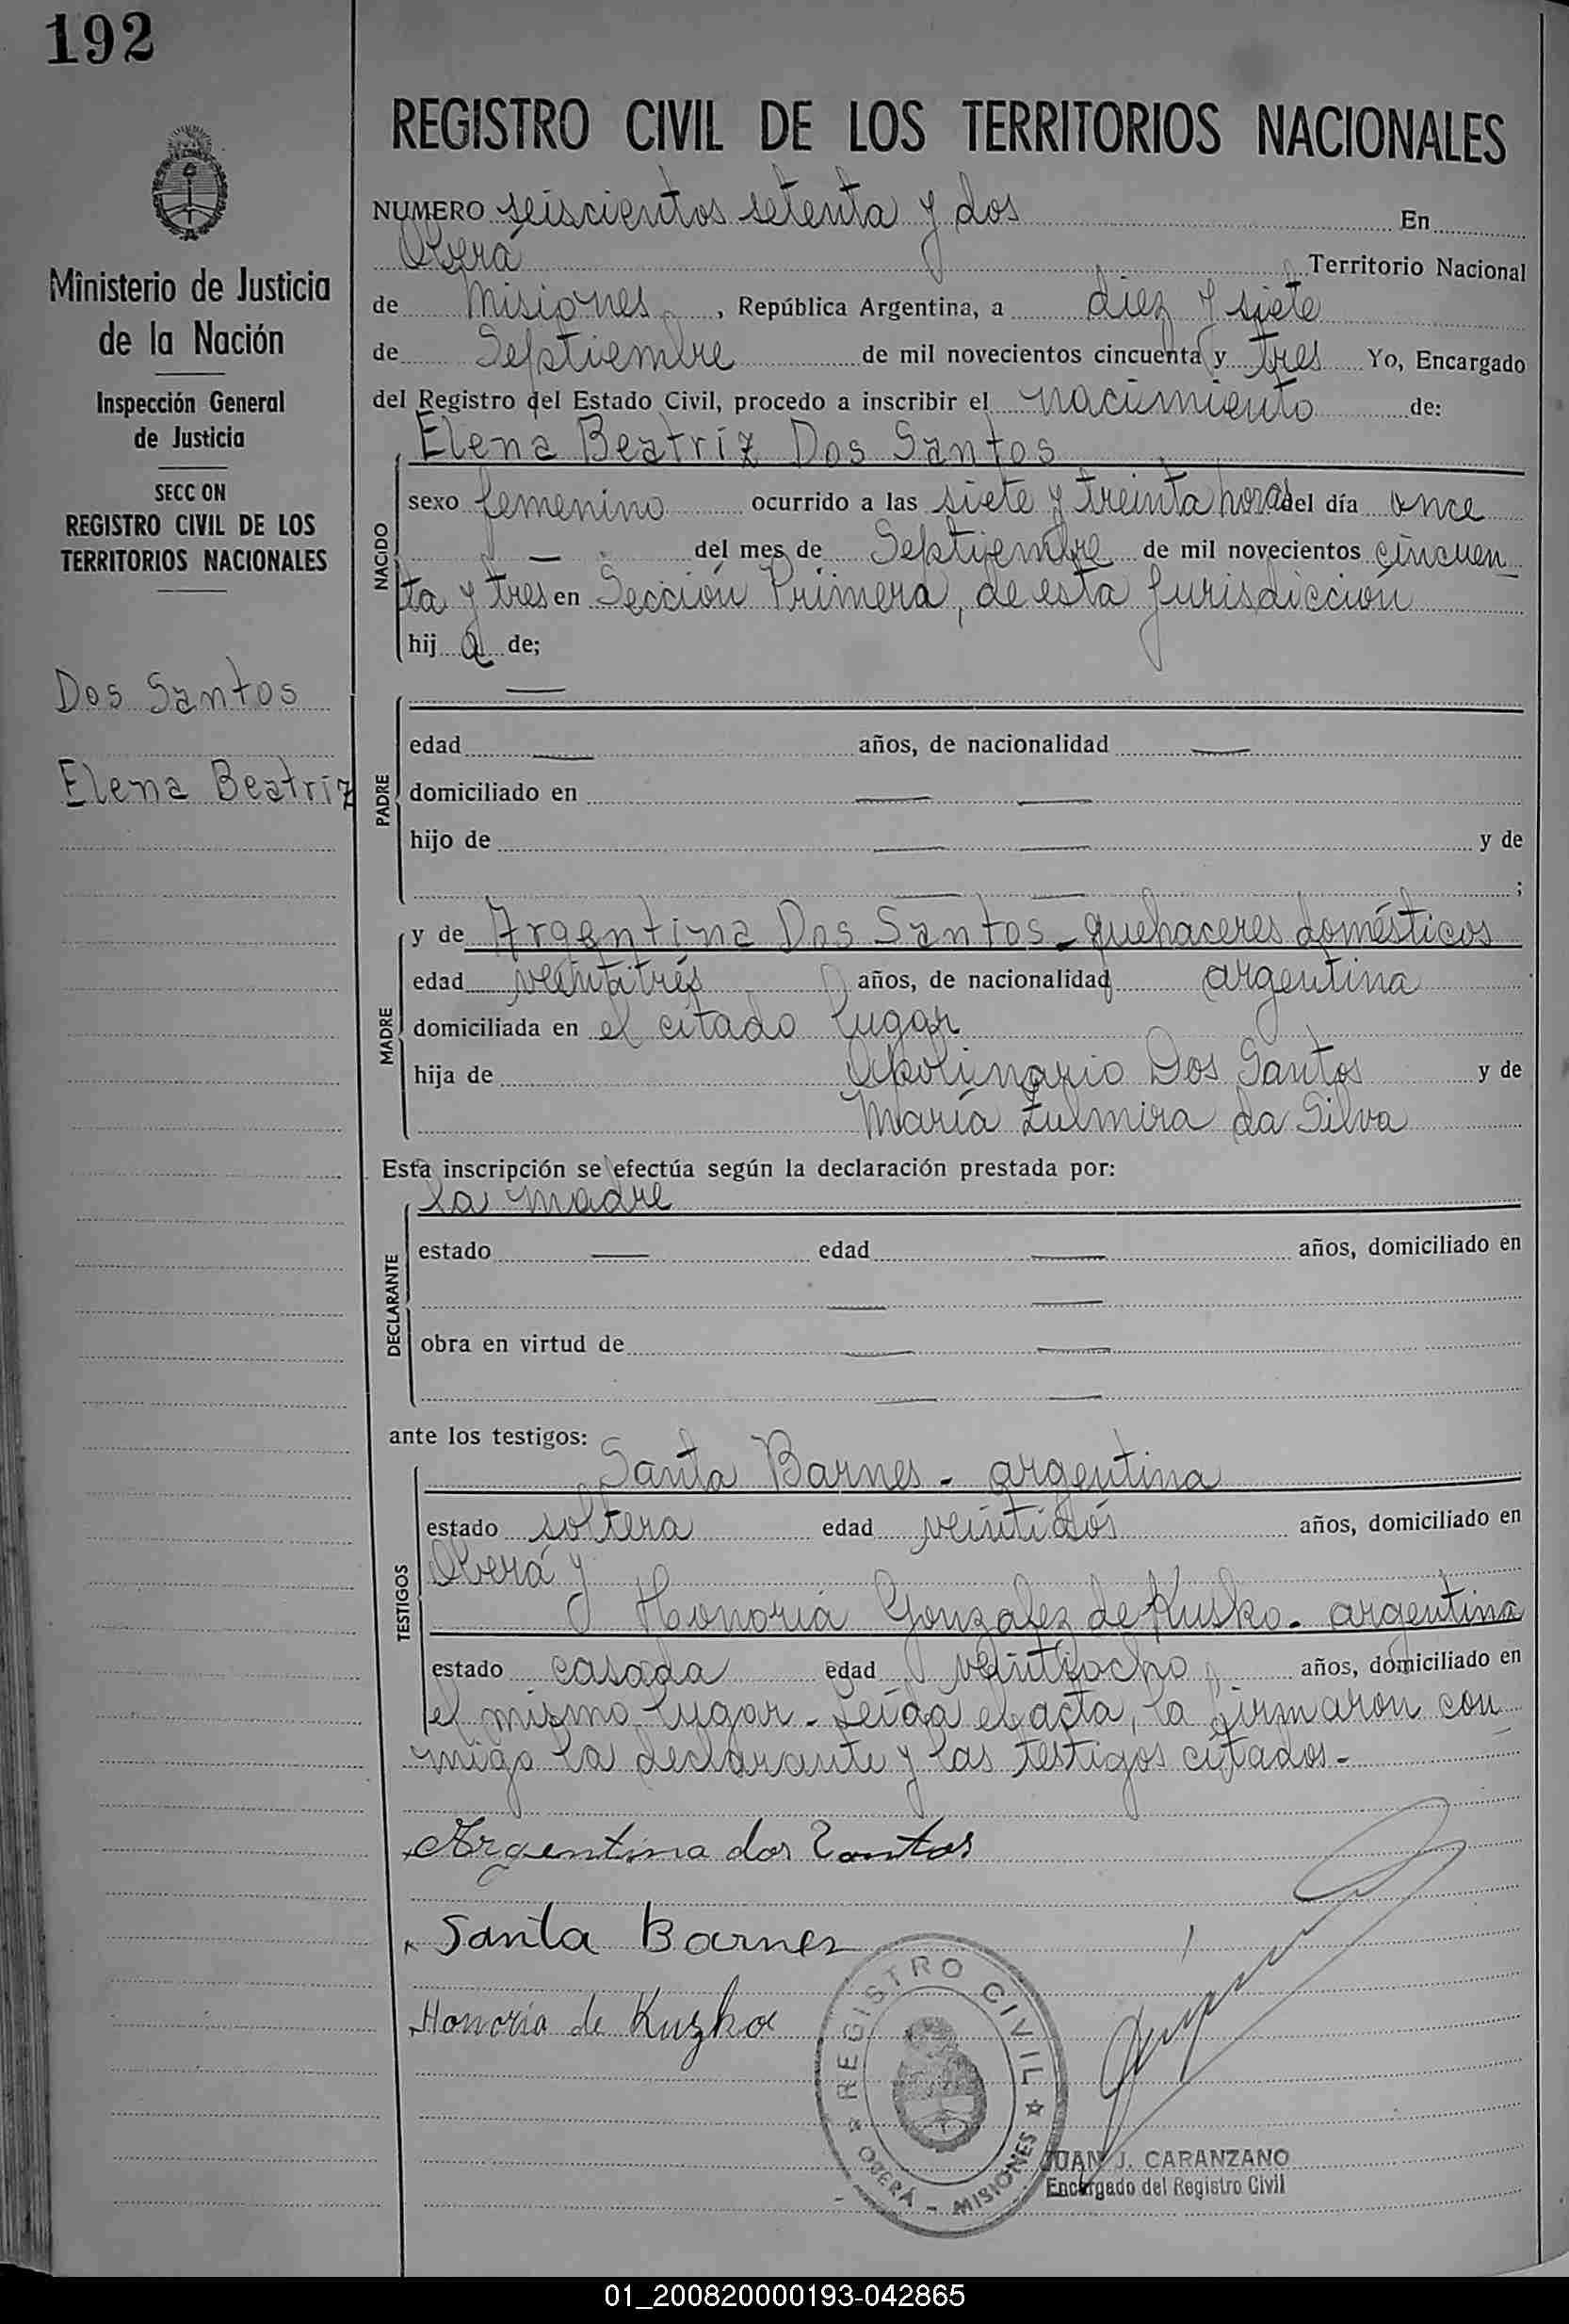 192
Ministerio de Justicia
de la Nación
Inspección General
de Justicia
SECC ON
REGISTRO CIVIL DE LOS
TERRITORIOS NACIONALES
Dos Santos
Elena Beatríz
REGISTRO CIVIL DE LOS TERRITORIOS NACIONALES
NUMERO seiscientos setenta y dos En
Oberá Territorio Nacional
de Misiones, República Argentina, a diez y siete
de Septiembre de mil novecientos cincuenta y tres Yo, Encargado
del Registro del Estado Civil, procedo a inscribir el nacimiento de:
Elena Beatríz Dos Santos
NACIDO
sexo femenino ocurrido a las siete y treinta horas del día once
— del mes de Septiembre de mil novecientos cincuen
ta y tres en Sección Primera, de esta Jurisdicción
hij a de;
—
PADRE
edad — años, de nacionalidad —
domiciliado en — —
hijo de — — y de
— — ;
MADRE
y de Argentina Dos Santos - quehaceres domésticos
edad veintitrés años, de nacionalidad argentina
domiciliada en el citado lugar
hija de Apolinario Dos Santos y de
María Zulmira da Silva
Esta inscripción se efectúa según la declaración prestada por:
la madre
DECLARANTE
estado — edad — años, domiciliado en
— —
obra en virtud de — —
— —
ante los testigos:
TESTIGOS
Santa Barnes - argentina
estado soltera edad veintidós años, domiciliado en
Oberá y
Honoria Gonzalez de Kusko - argentina
estado casada edad veintiocho años, domiciliado en
el mismo lugar - Leída el acta, la firmaron con
migo la declarante y las testigos citados -
Argentina dos Santos
Santa Barnes
Honoria de Kuzko
REGISTRO CIVIL
OBERÁ - MISIONES
JUAN J. CARANZANO
Encargado del Registro Civil
01_200820000193-042865